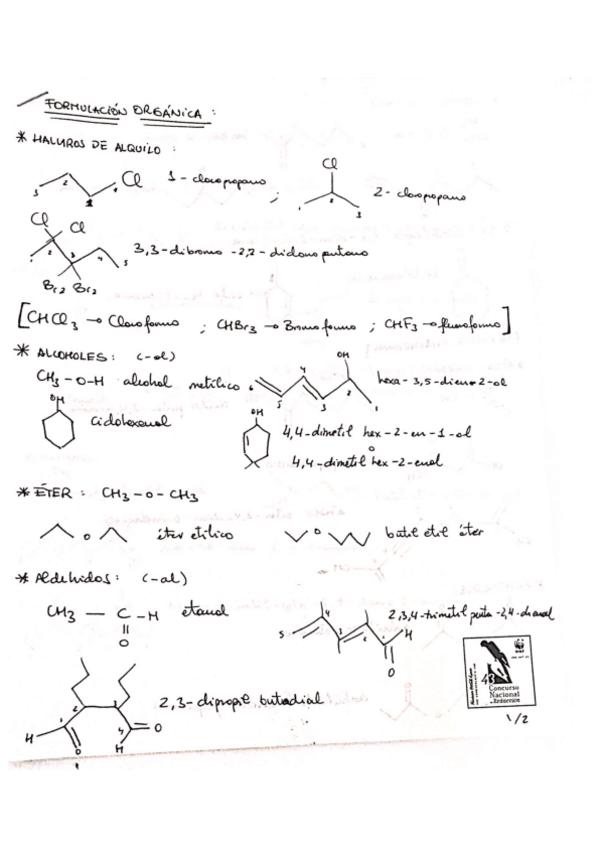 FORMULACIÓN ORGÁNICA :
* HALUROS DE ALQUILO :
3 2 1 Cl 1 - cloropropano ; Cl 1 2 3 2 - cloropropano
Cl Cl
1 2 3 4 5 3,3-dibromo -2,2- dicloropentano
Br2 Br2
[CHCl3 → Cloroformo ; CHBr3 → Bromoformo ; CHF3 → fluoroformo]
* ALCOHOLES : (-ol)
CH3 - O-H alcohol metílico 6 5 4 3 2 1 OH hexa - 3,5-dieno-2-ol
OH ciclohexanol
OH 4,4-dimetil hex-2-en-1-ol
o
4,4-dimetil hex-2-enol
* ÉTER : CH3 - O - CH3
O éter etílico O butil etil éter
* Aldehidos : (-al)
CH3 — C - H etanal
O
5 4 3 2 1 H O 2,3,4-trimetil penta-2,4-dienal
1 2 3 4 H O H O 2,3-dipropil butadial
WWF
43
Concurso
Nacional
de Redacción
1/2